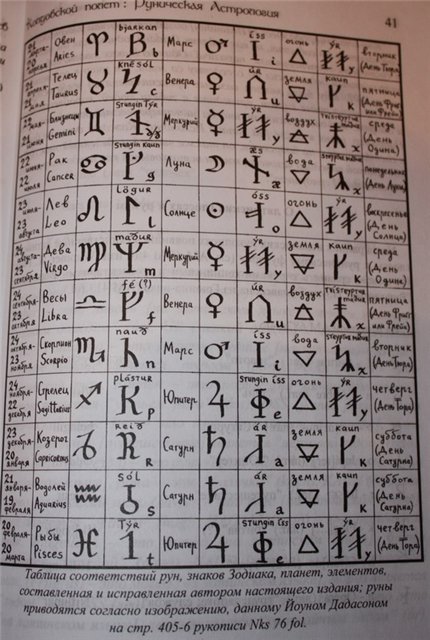 полет : Руническая Астрология 41
21 марта- 20 апреля Овен Aries ♈ bjarkan b Марс ♂ íss i огонь △ ýr y вторник (День Тора)
Телец Taurus ♉ knésól c Венера ♀ úr u земля kaun k пятница
Близнецы Gemini ♊ stungin Týr Меркурий ☿ ýr y воздух среда (День Одина)
22 июня- 22 июля Рак Cancer ♋ stungin kaun g Луна ☽ æ вода понедельник (День Луны)
23 июля- 23 августа Лев Leo ♌ lögur l Солнце ☉ óss o огонь △ ýr y воскресенье (День Солнца)
24 августа- 23 сентября Дева Virgo ♍ maður m Меркурий ☿ ýr y земля kaun k среда (День Одина)
24 сентября- 23 октября Весы Libra ♎ fé (?) f Венера ♀ úr u воздух x пятница
24 октября- 22 ноября Скорпион Scorpio ♏ nauð n Марс ♂ íss i вода x вторник (День Тора)
23 ноября- 22 декабря Стрелец Sagittarius ♐ plástur p Юпитер ♃ stungin íss e огонь △ ýr y четверг (День Тора)
23 декабря- 20 января Козерог Capricornus ♑ reið R Сатурн ♄ ár a земля kaun k суббота (День Сатурна)
21 января- 19 февраля Водолей Aquarius ♒ sól s Сатурн ♄ ár a земля kaun k суббота (День Сатурна)
20 февраля- 20 марта Рыбы Pisces ♓ Týr t Юпитер ♃ stungin íss e огонь △ ýr y четверг (День Тора)
Таблица соответствий рун, знаков Зодиака, планет, элементов,
составленная и исправленная автором настоящего издания; руны
приводятся согласно изображению, данному Йоуном Дадасоном
на стр. 405-6 рукописи Nks 76 fol.